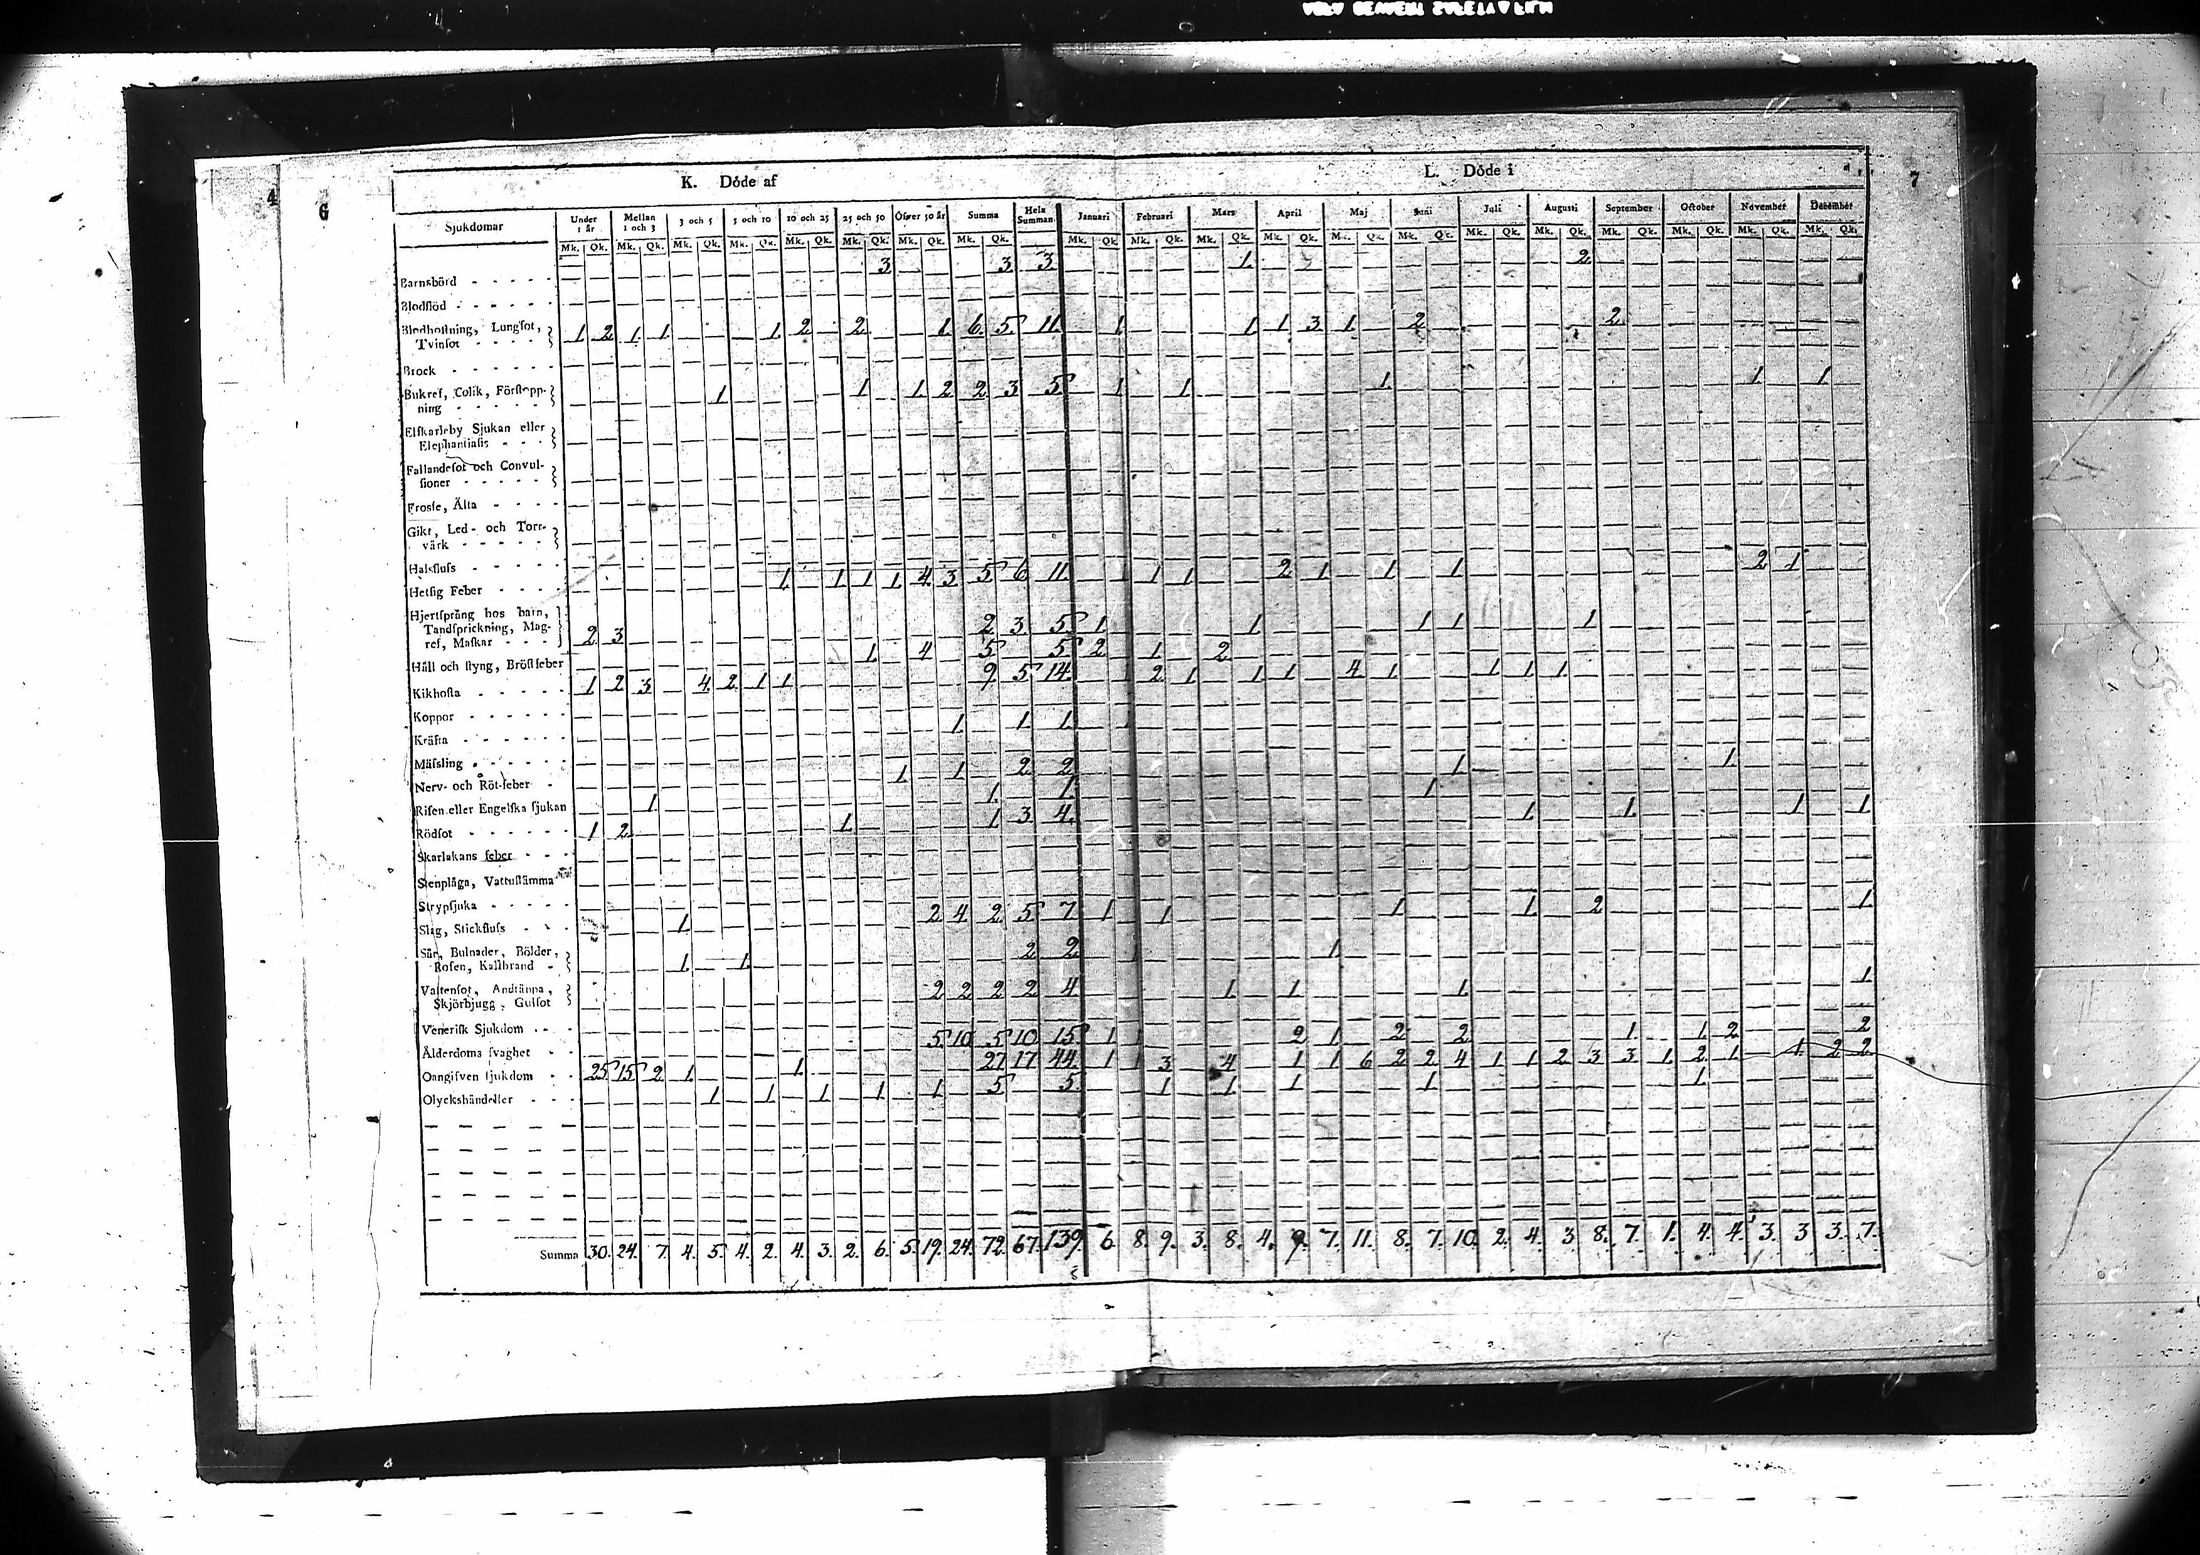 4
6
7
K. Döde af
L. Döde i
Sjukdomar Under 1 år Mellan 1 och 3 3 och 5 5 och 10 10 och 25 25 och 50 Öfver 50 år Summa Hela Summan Januari Februari Mars April Maj Juni Juli Augusti September October November December
Mk. Qk. Mk. Qk. Mk. Qk. Mk. Qk. Mk. Qk. Mk. Qk. Mk. Qk. Mk. Qk. Mk. Qk. Mk. Qk. Mk. Qk. Mk. Qk. Mk. Qk. Mk. Qk. Mk. Qk. Mk. Qk. Mk. Qk. Mk. Qk. Mk. Qk. Mk. Qk.
Barnsbörd - - - - - 3 3 3 1 2
Blodflöd - - - - - -
Blodhostning, Lungsot,
Tvinsot - - - - 1 2 1 1 1 2 2 1 6 5 11 1 1 1 3 1 2 2
Brock - - - - - -
Bukref, Colik, Förstopp-
ning - - - - - 1 1 1 2 2 3 5 1 1 1 1 1
Elfkarleby Sjukan eller
Elephantiasis - - -
Fallandesot och Convul-
sioner - - - - -
Frosse, Älta - - - -
Gikt, Led- och Torr-
värk - - - - -
Halsfluss - - - - -
Hetsig Feber - - - - 1 1 1 1 4 3 5 6 11 1 1 1 2 1 1 1 2 1
Hjertsprång hos barn,
Tandsprickning, Mag-
ref, Maskar - - - 2 3 2 3 5 1 1 1 1 1
Håll och styng, Bröstfeber 1 4 5 5 2 1 2
Kikhosta - - - - - 1 2 3 4 2 1 1 9 5 14 1 2 1 1 1 4 1 1 1 1
Koppor - - - - - -
Kräfta - - - - - - 1 1 1 1
Mässling - - - - -
Nerv- och Röt-feber - 1 1 2 2 1 1
Risen eller Engelska sjukan 1 1 1 1
Rödsot - - - - - - 1 2 1 1 3 4 1 1 1 1
Skarlakans feber - - -
Stenplåga, Vattustämma
Strypsjuka - - - - -
Slag, Stickfluss - - - 1 2 4 2 5 7 1 1 1 1 2 1
Sår, Bulnader, Bölder,
Rosen, Kallbrand - 1 1 2 2 1 1
Vattensot, Andtäppa,
Skjörbjugg, Gulsot 2 2 2 2 4 1 1 1 1
Venerisk Sjukdom - - -
Ålderdoms svaghet - - 5 10 5 10 15 1 1 2 1 2 2 1 1 2 2
Oangifven sjukdom - - 25 15 2 1 1 27 17 44 1 1 3 4 1 1 6 2 2 4 1 1 2 3 3 1 2 1 1 2 2
Olyckshändelser - - - 1 1 1 1 1 5 5 1 1 1 1 1
Summa 30. 24. 7. 4. 5. 4. 2. 4. 3. 2. 6. 5. 19. 24. 72. 67. 139. 6. 8. 9. 3. 8. 4. 9. 7. 11. 8. 7. 10. 2. 4. 3 8. 7. 1. 4. 4. 3. 3 3. 7.